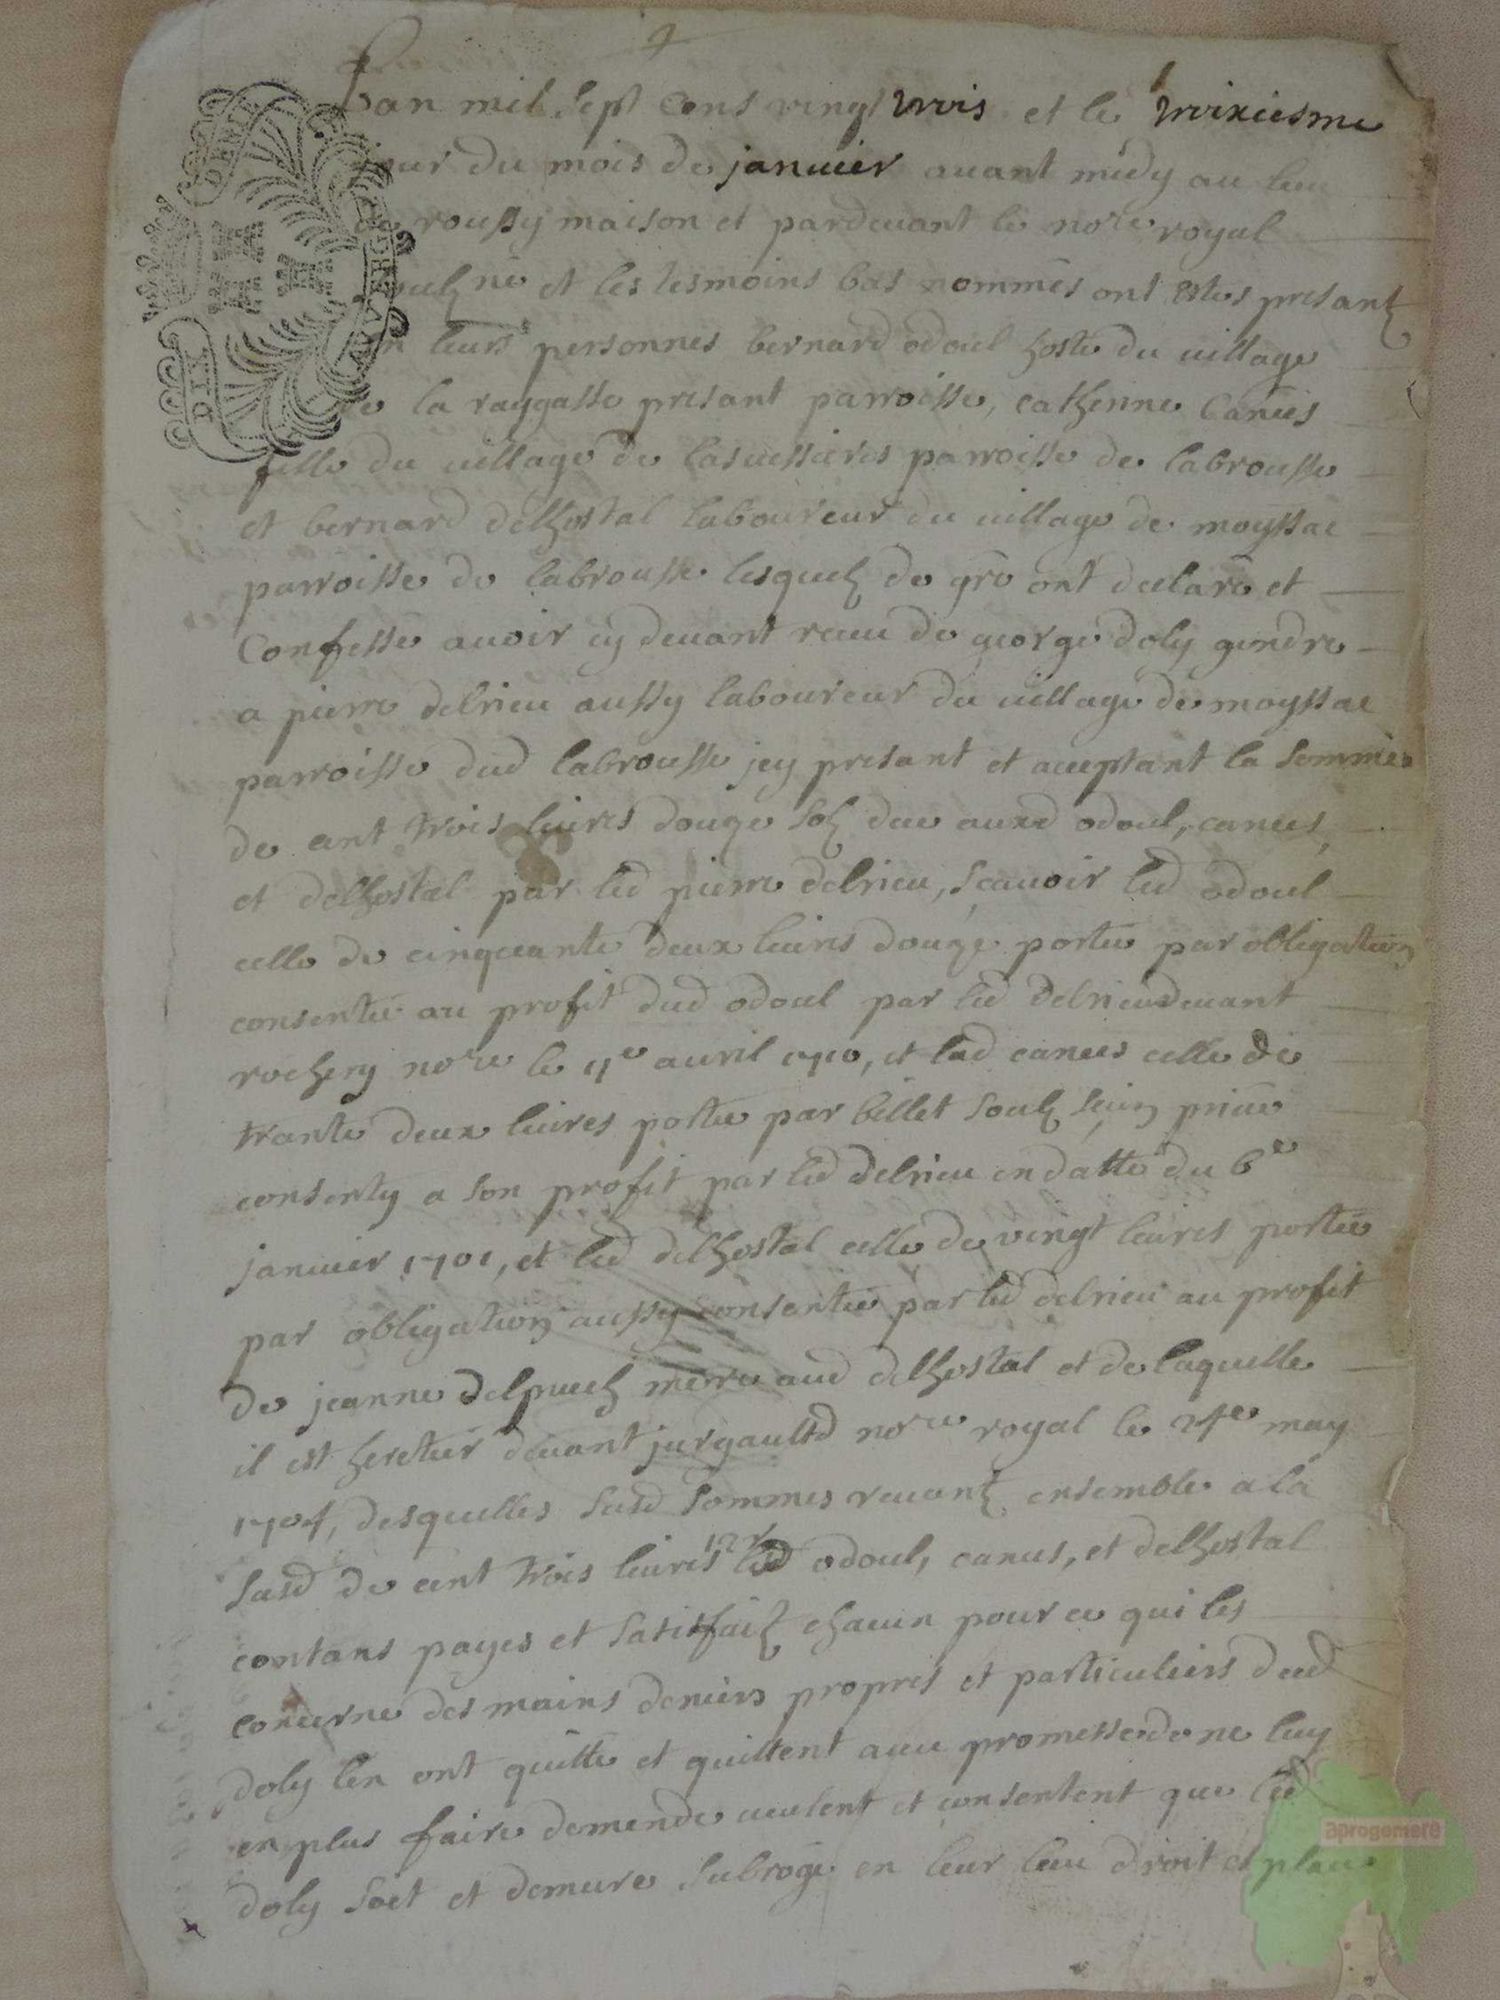 Lan mil sept cens vingt trois et le troixiesme
jour du mois de janvier avant midy au lieu
de roussy maison et pardevant le no.re royal
ne et les tesmoins bas nommés ont estes presantz
en leurs personnes bernard odoul hoste du village
de la raygasse presant parroisse, catherine Canies
fille du village de lasvessieres parroisse de labrousse
et bernard delhostal laboureur du village de moyssac
parroisse de labrousse lesquelz de gré ont declaré et
Confessé avoir cy devant receu de george doly gendre
a pierre delrieu aussy laboureur du village de moyssac
parroisse dud labrousse jcy presant et acceptant la somme
de cent trois livres douze solz due auxd odoul, canies,
et delhostal par led pierre delrieu, sçavoir led odoul
celle de cinquante deux livres douze portée par obligation
consentie au profit dud odoul par led delrieu devant
rochery no.re le 11e avril 1710, et lad canies celle de
trante deux livres portée par billet soulz seing privé
consenty a son profit par led delrieu en datte du 6e
janvier 1701, et led delhostal celle de vingt livres portée
par obligation aussy consentie par led delrieu au profit
de jeanne delpuech mere aud delhostal et de laquelle
il est heretier devant jurgaultd no.re royal le 24e may
1704, desquelles susd sommes revenantz ensemble a la
susd de cent trois livres 12s lesd odoul, canies, et delhostal
contans payes et satisfaitz chacun pour ce qui les
concerne des mains deniers propres et particuliers dud
doly len ont quitté et quittent avec promesse de ne luy
en plus faire demende veulent et consentent que led
doly soit et demure subrogé en leur lieu droit et place
DIX DEN
aprogemere